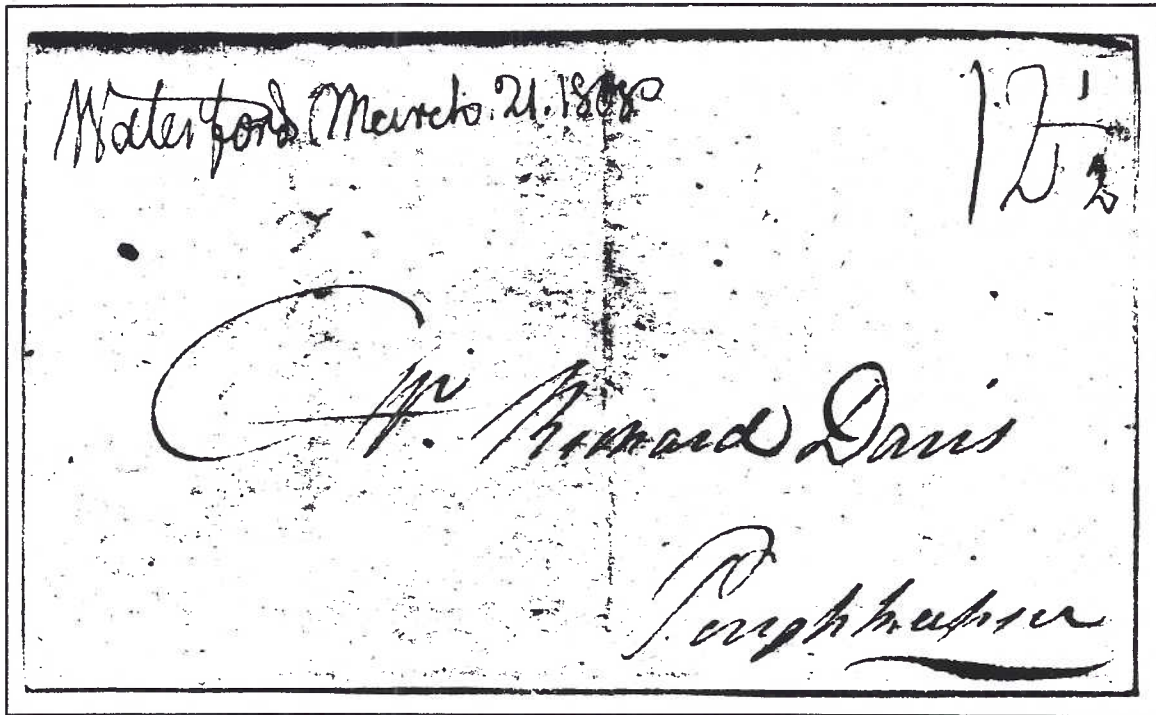 Waterford March 21. 1808
12 1/2
Mr. Richard Davis
Poughkeepsie